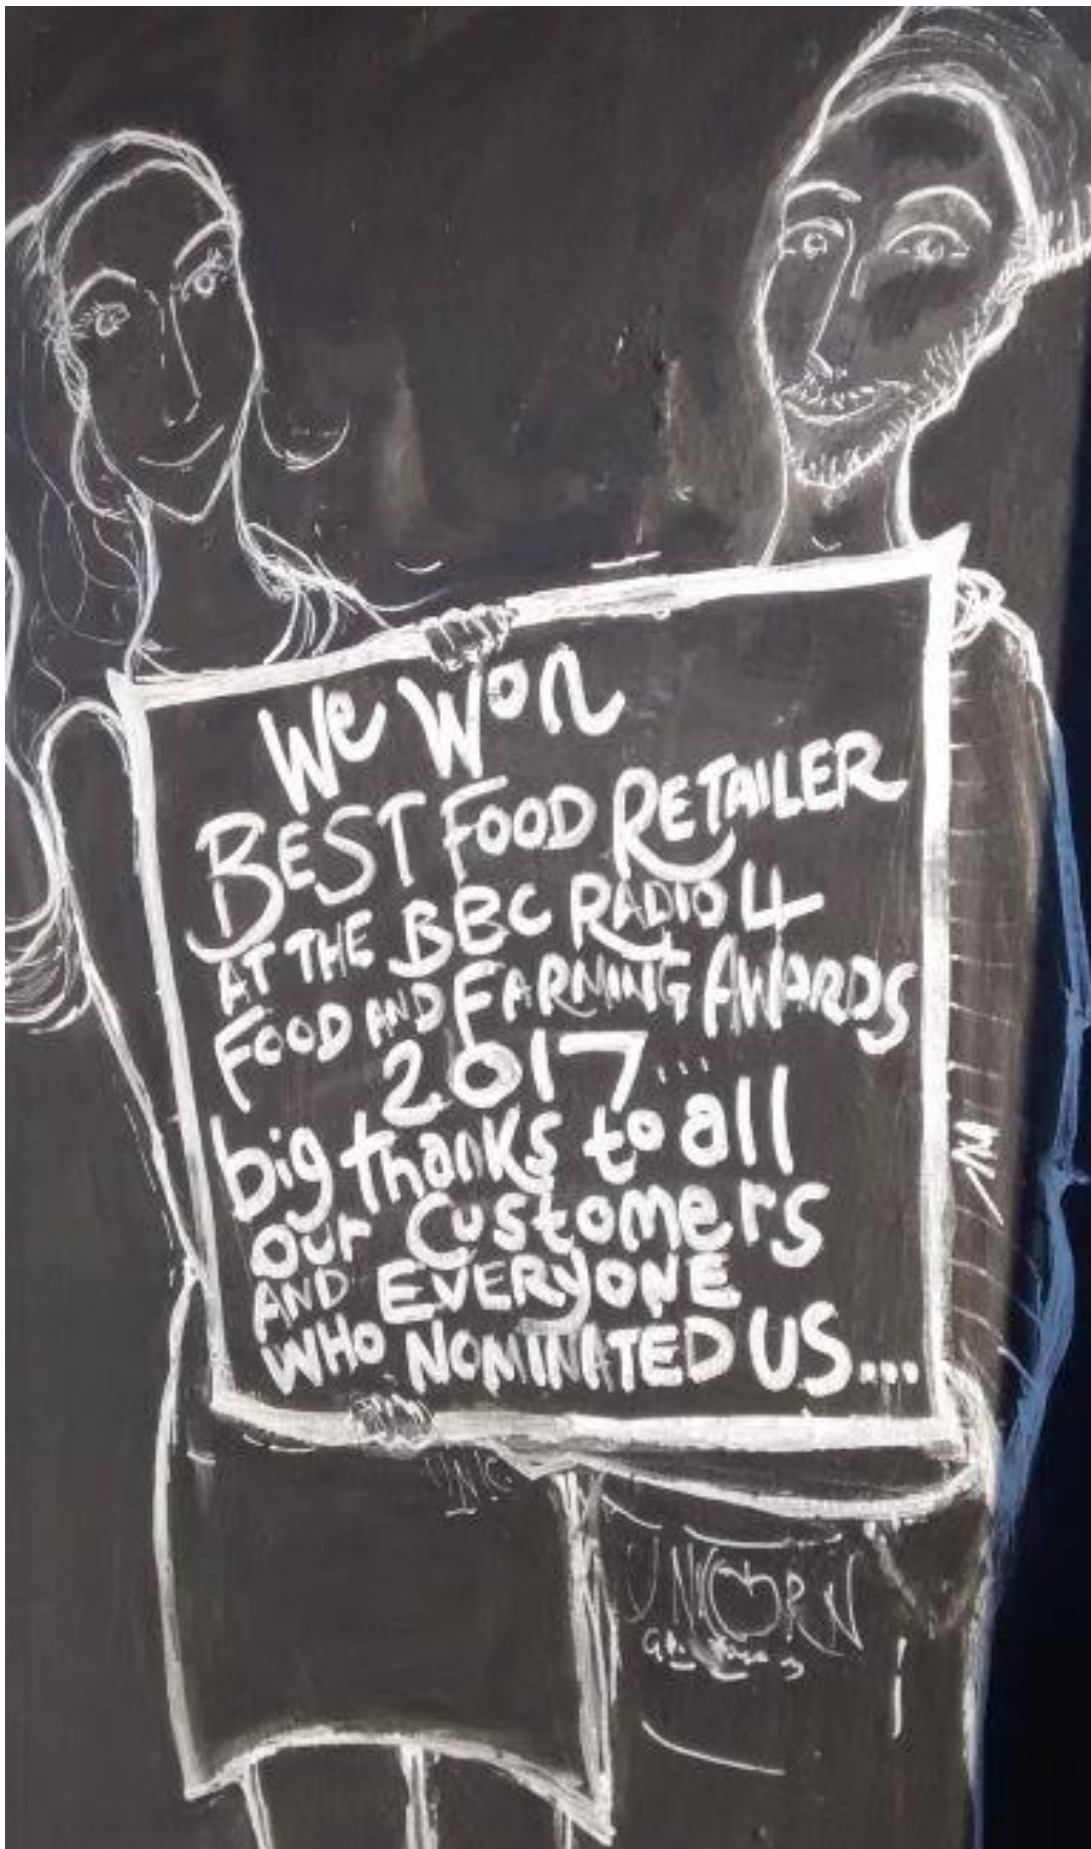 We Won
BEST FOOD RETAILER
AT THE BBC RADIO 4
FOOD AND FARMING AWARDS
2017...
big thanks to all
our Customers
AND EVERYONE
WHO NOMINATED US...
UNICORN